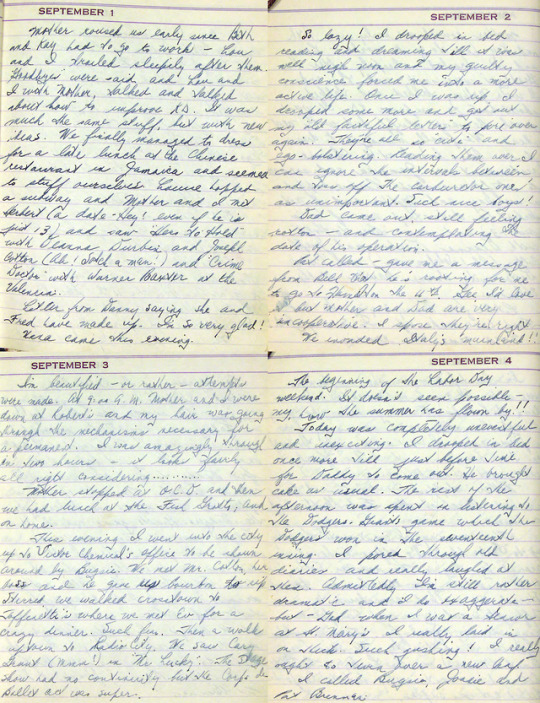 SEPTEMBER 1
Mother roused us early since Beth
and Kay had to go to work – Lou
and I trailed sleepily after them.
Goodbyes were said and Lou and
I with Mother, talked and talked
about how to improve It was
much the same stuff, but with new
ideas. We finally managed to dress
for a late lunch at the Chinese
restaurant in Jamaica and seemed
to stuff ourselves. Louise hopped
a subway and Mother and I met
Herbert (a date – Hey! even if he is
just 13) and saw "Hers to Hold"
with Deanna Durbin and Joseph
Cotton (Ah! Such a man!) and "Crime
Doctor" with Warner Baxter at the
Valencia.
Letter from Danny saying she and
Fred have made up. I'm so very glad!
Vera came this evening.
SEPTEMBER 2
So lazy! I drooped in bed
reading and dreaming till it was
well nigh noon and my guilty
conscience forced me into a more
active life. Once I was up, I
drooped some more and got out
my old faithful letters to pore over
again. They're all so cute – and
ego-bolstering. Reading them over I
can ignore the intervals between
and toss off the carburetor one
as unimportant. Such nice boys!
Dad came out, still feeling
rotten – and contemplating the
date of his operation.
Pat called – gave me a message
from Bill he's rooting for me
to go to the 4th. Gee I'd love
– but Mother and Dad are very
uncooperative. I spose they're right
We invaded Italy's mainland!!
SEPTEMBER 3
I'm beautiful – or rather – attempts
were made. At 9:00 A.M. Mother and I were
down at Robert's and my hair was going
through the mechanisms necessary for
a permanent. I was amazingly through
in two hours – it looks fairly
all right considering..........
Mother stopped at O.C.D. and then
we had lunch at the Fish Grotto, and
on home.
This evening I went into the city
up to Victor Chemical's office to be shown
around by Bugsie. We met Mr. Cotton, her
boss and he gave us bourbon to sip
we walked crosstown to
Caffinetti's where we met Ev for a
crazy dinner. Such fun. Then a walk
uptown to Radio City. We saw Cary
Grant (Mmm!) in "Mr. Lucky". The Stage
show had no continuity but the Corps de
Ballet act was super.
SEPTEMBER 4
The beginning of the Labor Day
weekend. It doesn't seem possible –
my how the summer has flown by!!
Today was completely uneventful
and unexciting. I drooped in bed
once more till just before time
for Daddy to come out. He brought
cake as usual. The rest of the
afternoon was spent in listening to
the Dodgers-Giants game which the
Dodgers won in the seventeenth
inning. I pored through old
diaries and really laughed at
them. Admittedly I'm still rather
dramatic and I do exaggerate –
but – Dad when I was a Senior
at St. Mary's I really laid it
on thick. Such gushing! I really
ought to turn over a new leaf.
I called Bugsie, Jossie and
Pat Brenner.